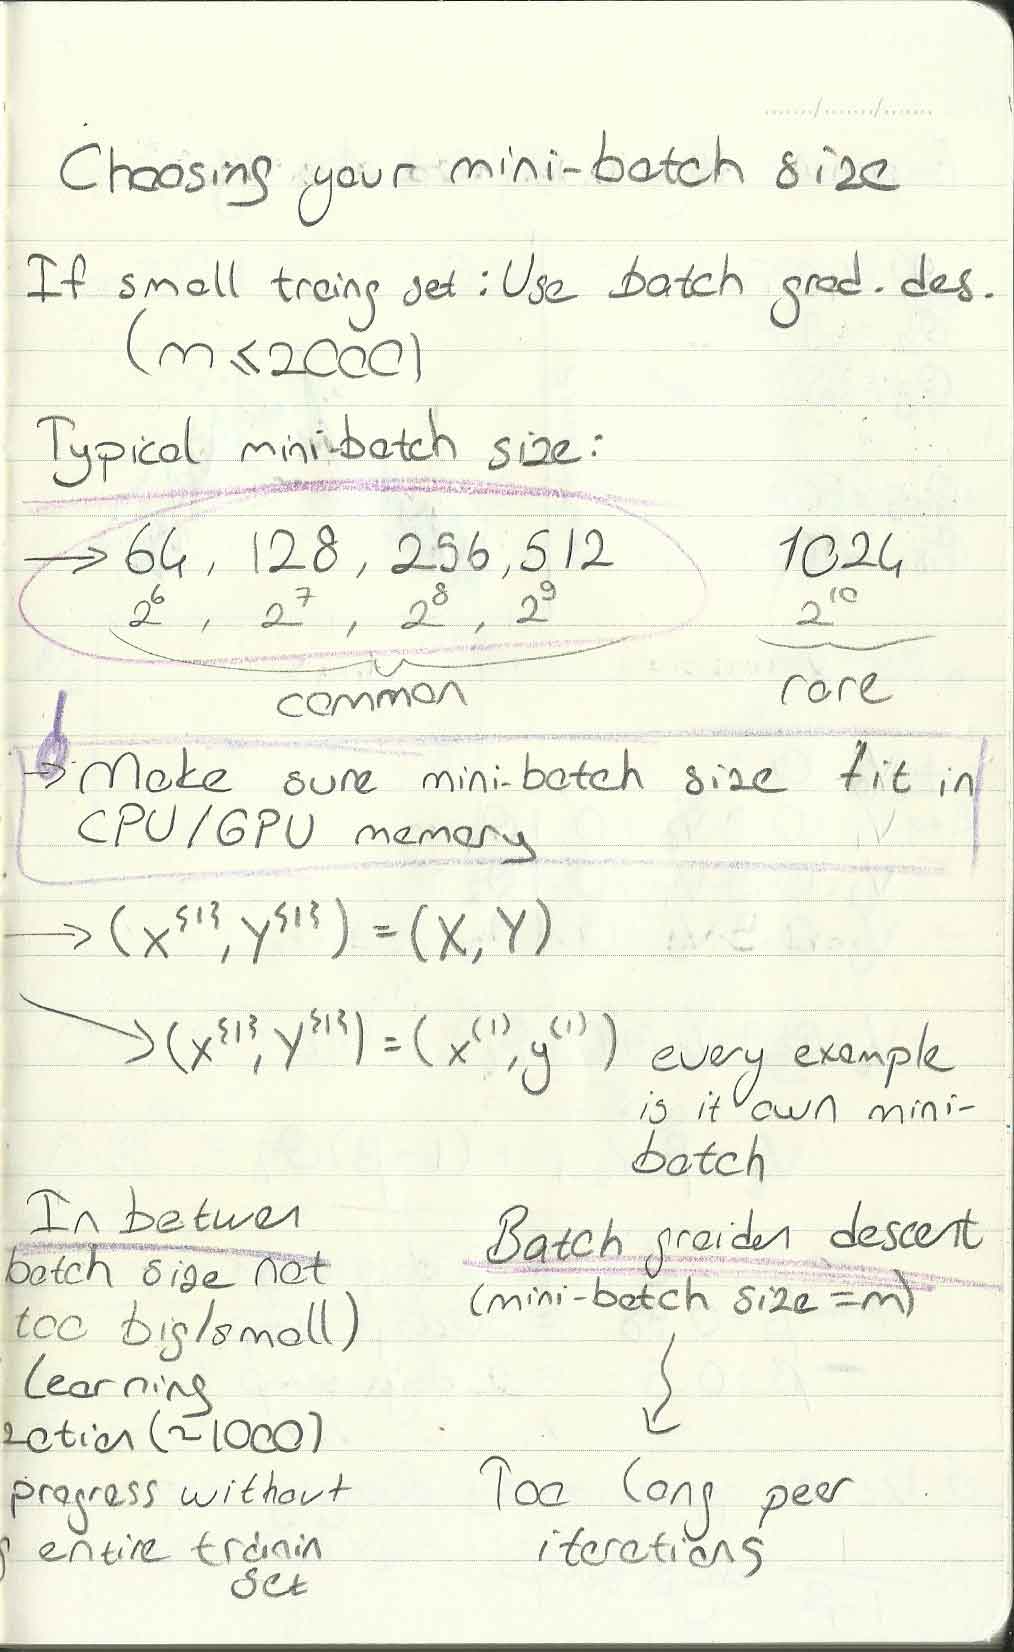 Choosing your mini-batch size
If small traing set : Use batch grad. des.
(m ⩽ 2000)
Typical mini-batch size:
→ 64, 128, 256, 512 1024
2^6, 2^7, 2^8, 2^9 2^10
common rare
→ Make sure mini-batch size fit in
CPU/GPU memory
→ (X^{1}, Y^{1}) = (X, Y)
→ (X^{1}, Y^{1}) = (x^(1), y^(1)) every example
is it own mini-
batch
In betwen
batch size not
too big/small)
Learning
(~1000)
progress without
entire trainin
set
Batch graiden descent
(mini-batch size = m)
Too long peer
iterations